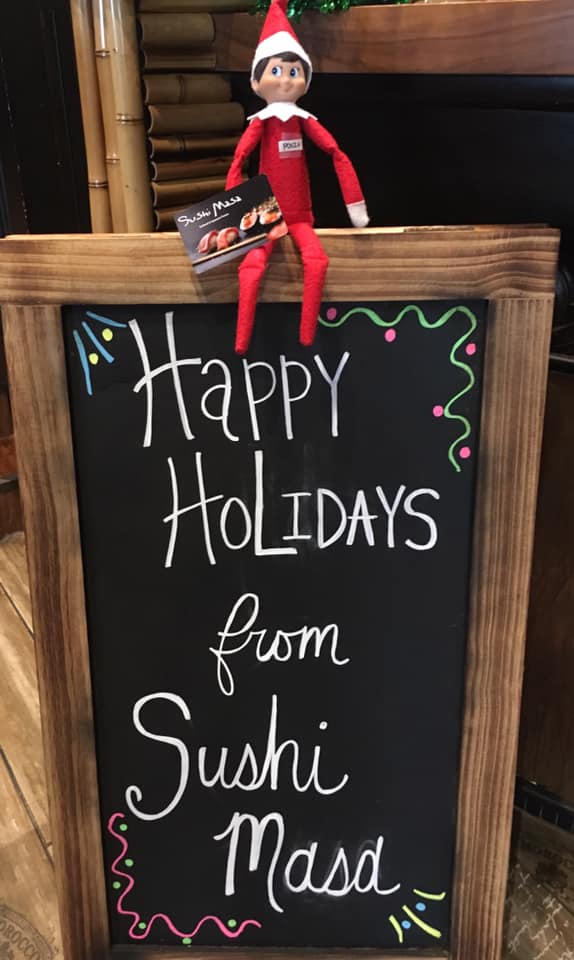 Sushi Masa
Happy
HoLiDAYS
from
Sushi
Masa
MOROCCO